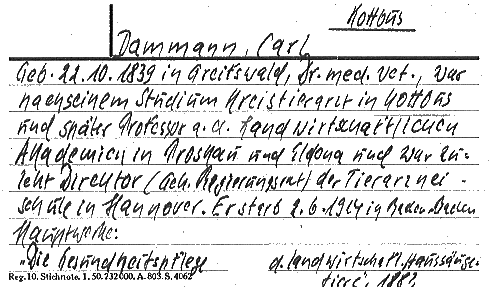 Kottbus
Dammann, Carl
Geb. 22.10.1839 in Greifswald, Dr. med. vet., war
nach seinem Studium Kreistierarzt in Kottbus
und später Professor a. d. Landwirtschaftlichen
Akademien in Proskau und Eldena und war zu-
letzt Direktor (Geh. Regierungsrat) der Tierarznei-
schule in Hannover. Er starb 2.6.1914 in Baden-Baden
Hauptwerke:
„Die Gesundheitspflege d. landwirtschaftl. Haussäuge-
tiere", 1883
Reg. 10. Stichnote. 1. 50. 232000. A. 803. S. 4062